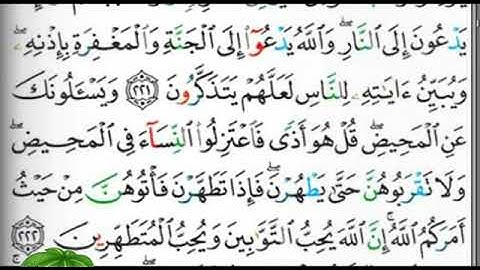 يَدْعُونَ إِلَى النَّارِ ۖ وَاللَّهُ يَدْعُوٓا۟ إِلَى الْجَنَّةِ وَالْمَغْفِرَةِ بِإِذْنِهِۦ ۖ
وَيُبَيِّنُ ءَايَـٰتِهِۦ لِلنَّاسِ لَعَلَّهُمْ يَتَذَكَّرُونَ ﴿٢٢١﴾ وَيَسْـَٔلُونَكَ
عَنِ الْمَحِيضِ ۖ قُلْ هُوَ أَذًى فَاعْتَزِلُوا۟ النِّسَآءَ فِى الْمَحِيضِ ۖ
وَلَا نَقْرَبُوهُنَّ حَتَّىٰ يَطْهُرْنَ ۖ فَإِذَا تَطَهَّرْنَ فَأْتُوهُنَّ مِنْ حَيْثُ
أَمَرَكُمُ اللَّهُ ۚ إِنَّ اللَّهَ يُحِبُّ التَّوَّٰبِينَ وَيُحِبُّ الْمُتَطَهِّرِينَ ﴿٢٢٢﴾